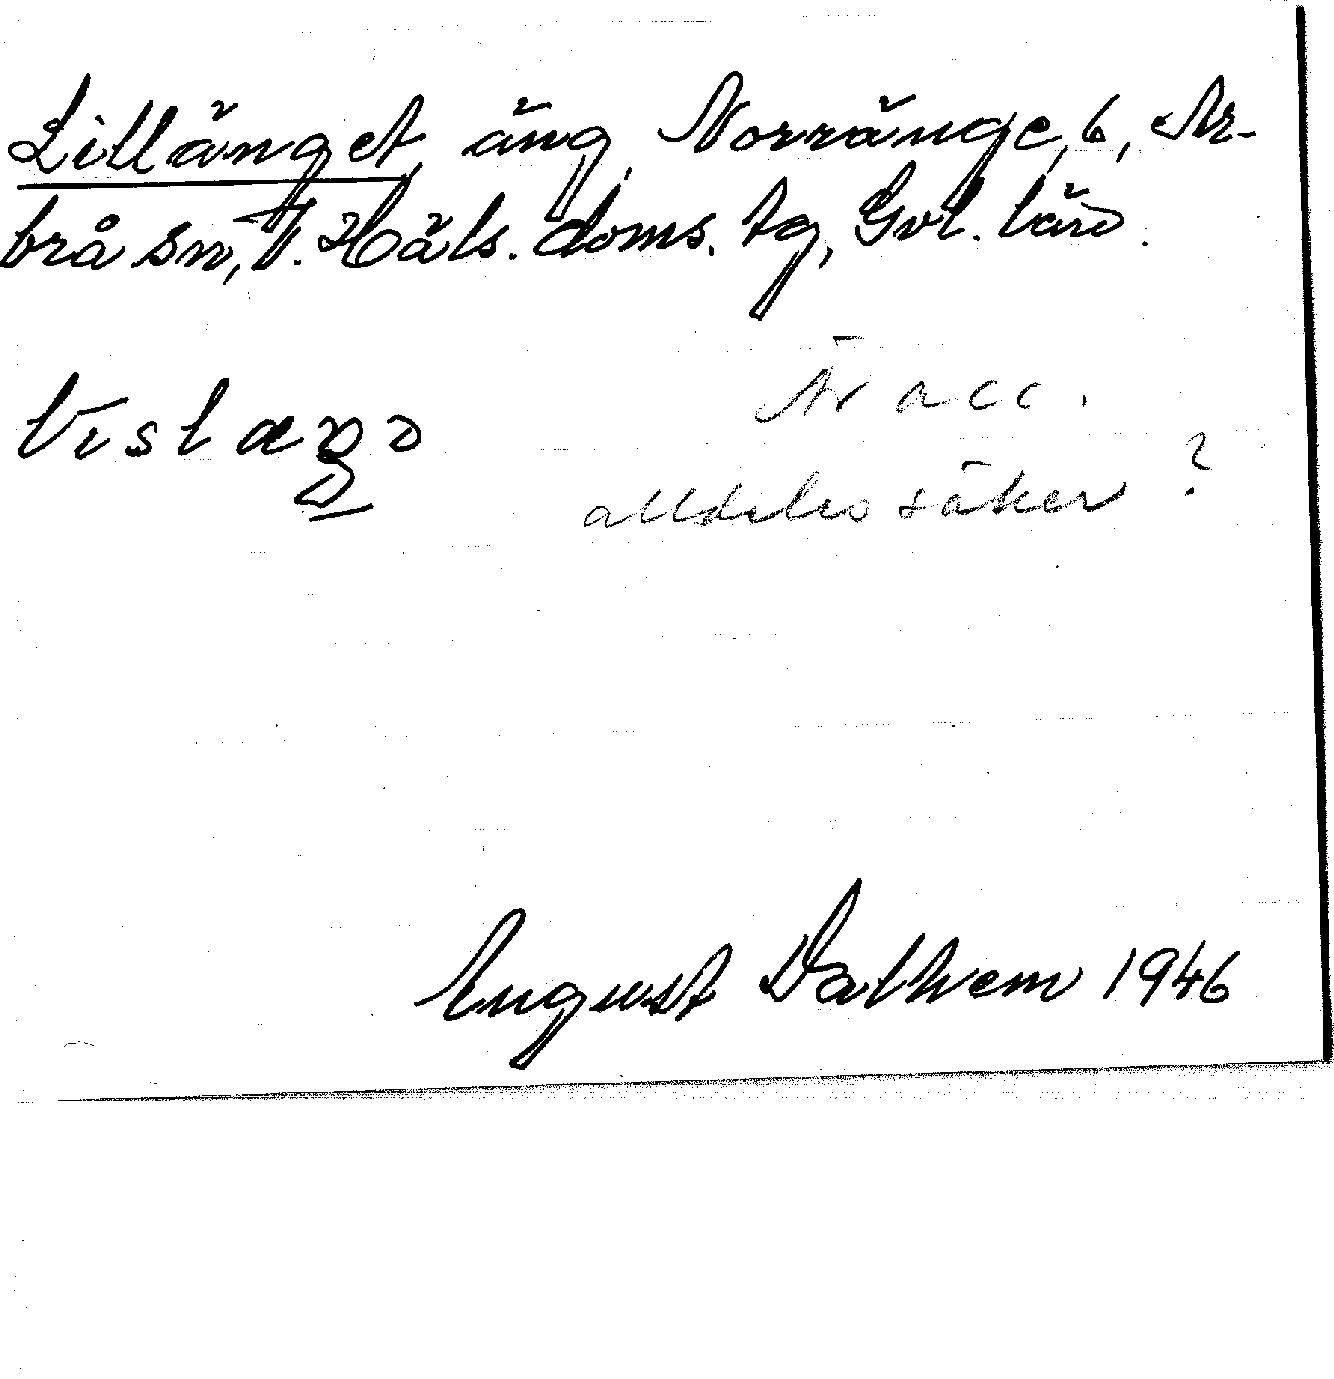 Lillänget, äng, Norränge, 6, Ar-
brå sn, V. Häls. doms. tg, Gvl. län.
Är acc.
alldeles säker?
August Dalhem 1946